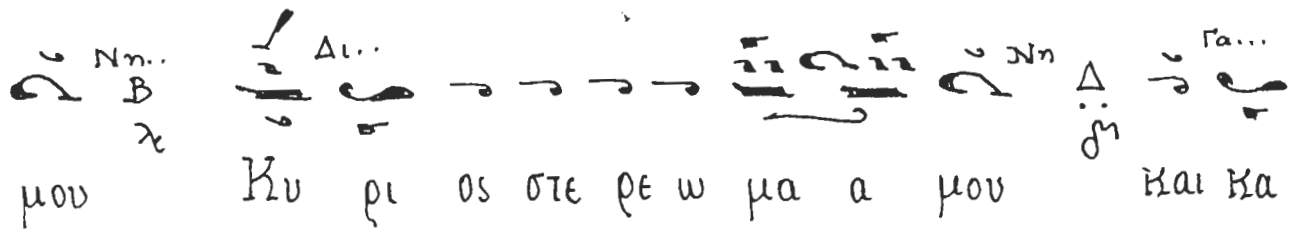 Νη.. Δι.. Νη Γα...
Β Δ
λ
μου Κυ ρι ος στε ρε ω μα α μου και κα